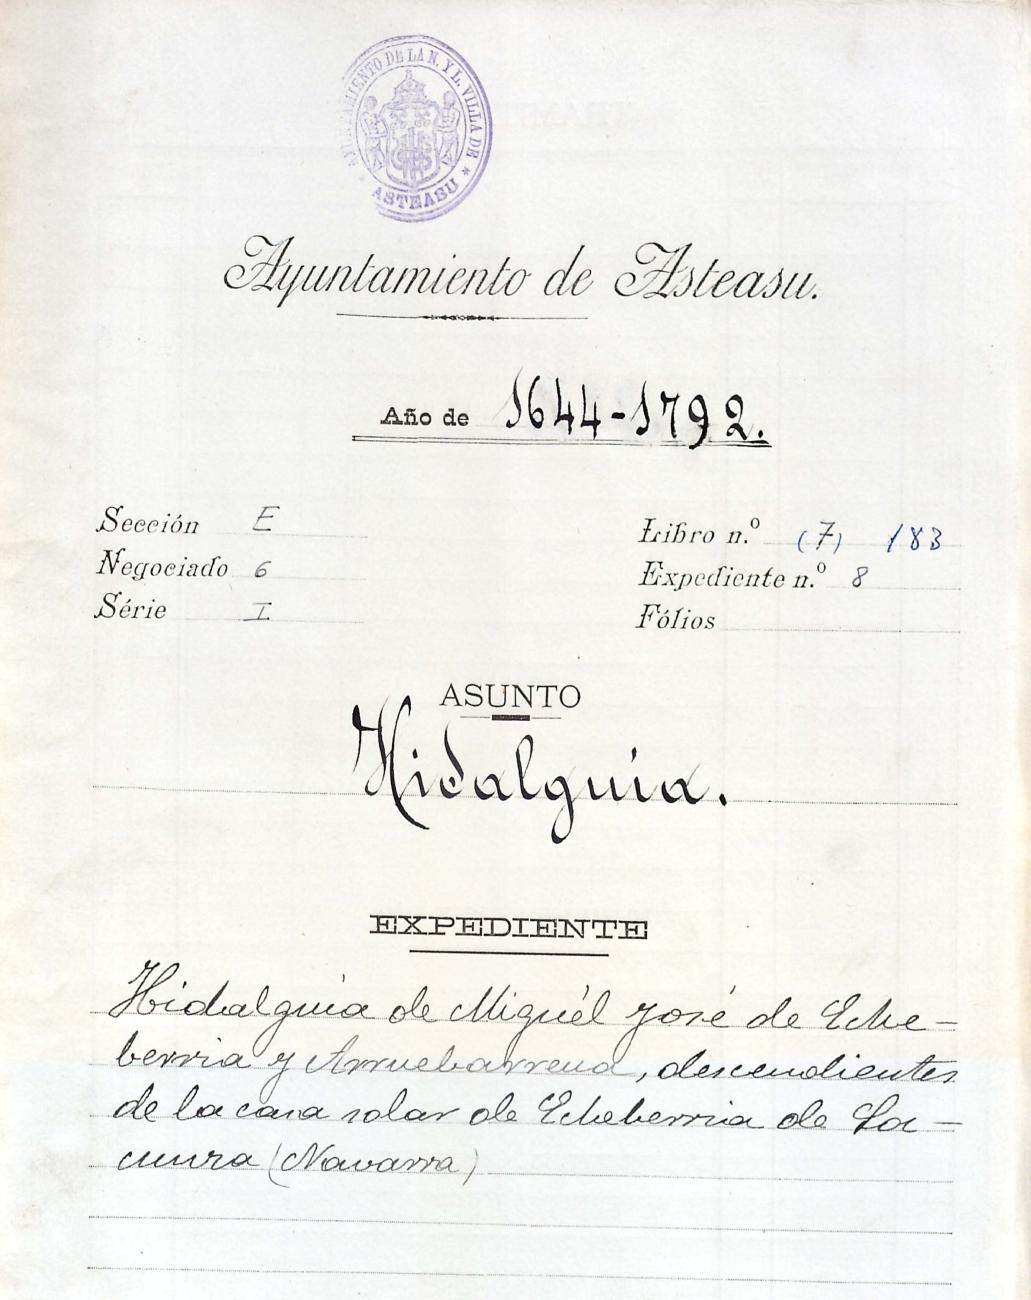 AYUNTAMIENTO DE LA N. Y L. VILLA DE
* ASTEASU *
Ayuntamiento de Asteasu.
Año de 1644-1792.
Sección E
Negociado 6
Série I
Libro n.º (7) 183
Expediente n.º 8
Fólios
ASUNTO
Hidalguia.
EXPEDIENTE
Hidalguia de Miguél José de Eche-
berria y Arruebarrena, descendientes
de la casa solar de Echeberria de La-
cunza (Navarra)